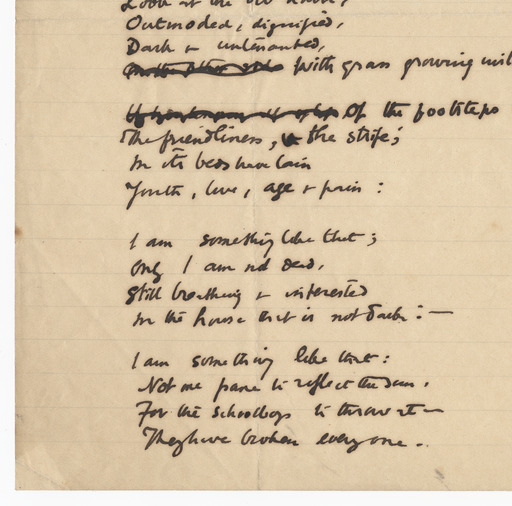 Look at the old house,
Outmoded, dignified,
Dark & untenanted,
With grass growing inst
Of the footsteps
The friendliness, the strife;
In its beds have lain
Youth, love, age & pain:
I am something like that;
Only I am not dead,
Still breathing & interested
In the house that is not dark:—
I am something like that:
Not one pane to reflect the sun,
For the schoolboys to throw at—
They have broken every one.